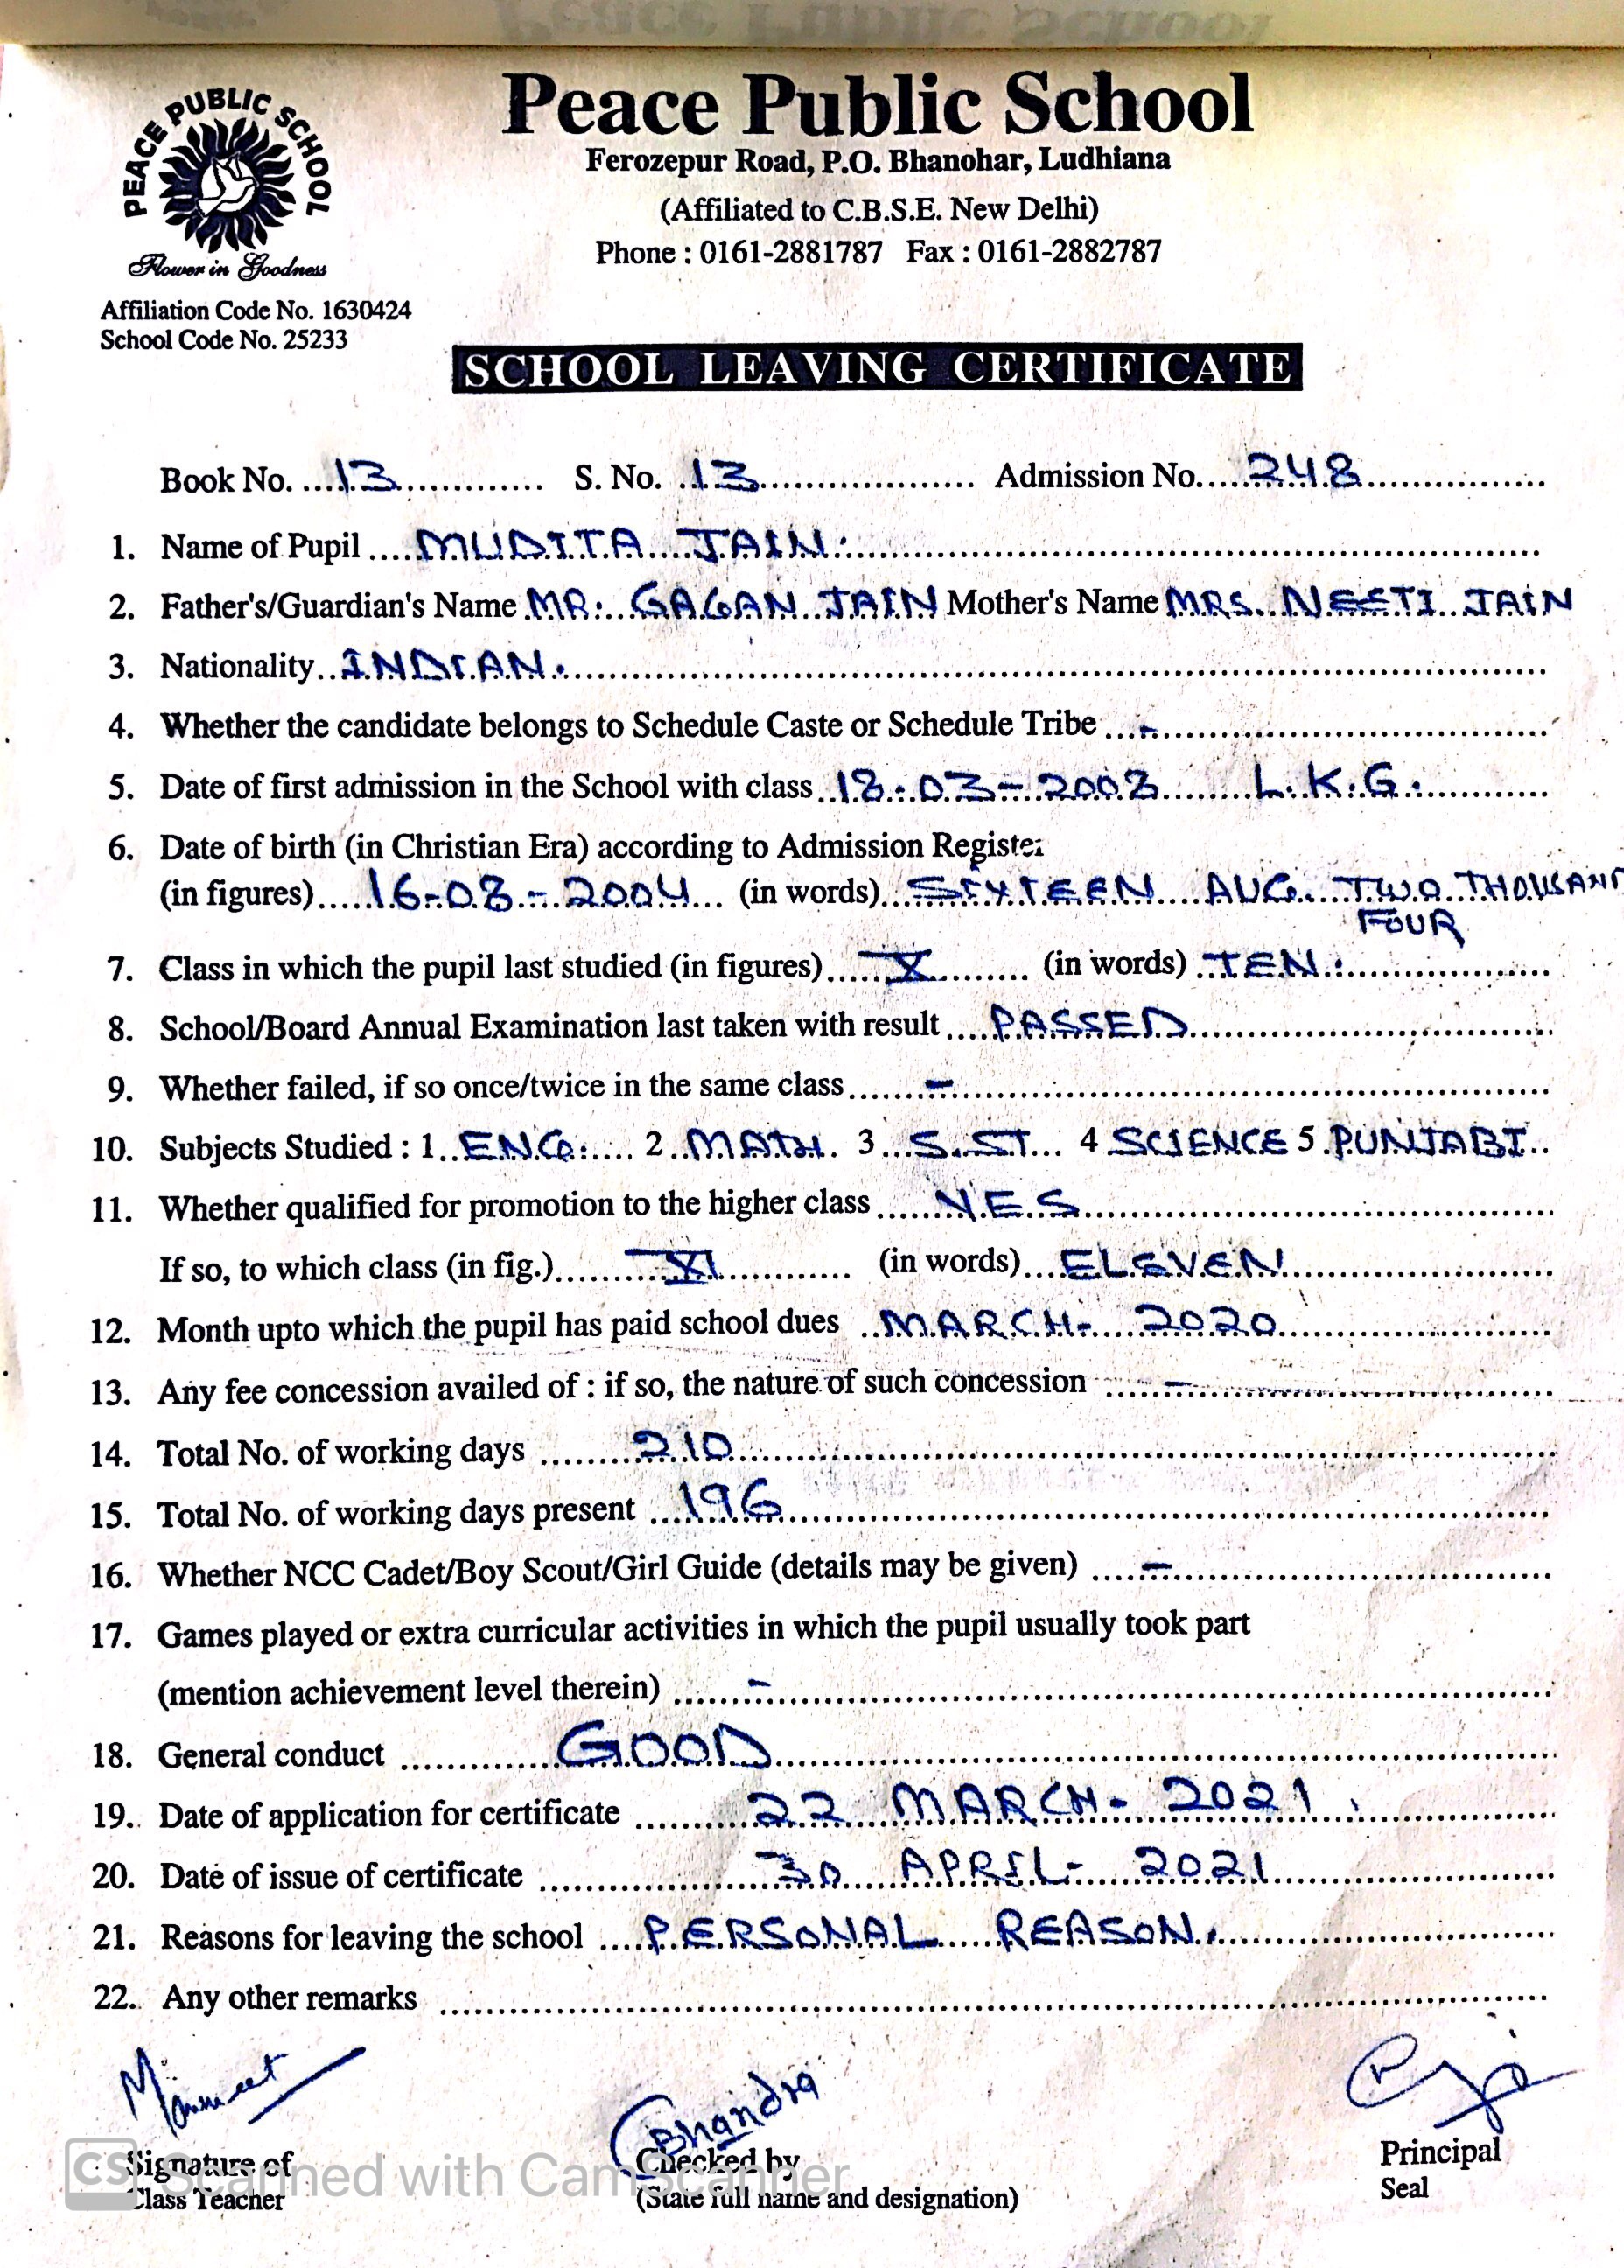 PEACE PUBLIC SCHOOL
Flower in Goodness
Affiliation Code No. 1630424
School Code No. 25233
Peace Public School
Ferozepur Road, P.O. Bhanohar, Ludhiana
(Affiliated to C.B.S.E. New Delhi)
Phone : 0161-2881787 Fax : 0161-2882787
SCHOOL LEAVING CERTIFICATE
Book No. 13 S. No. 13 Admission No. 248
1. Name of Pupil MUDITA JAIN.
2. Father's/Guardian's Name MR. GAGAN JAIN Mother's Name MRS. NEETI JAIN
3. Nationality INDIAN.
4. Whether the candidate belongs to Schedule Caste or Schedule Tribe -
5. Date of first admission in the School with class 18-03-2008 L.K.G.
6. Date of birth (in Christian Era) according to Admission Register
(in figures) 16-08-2004 (in words) SIXTEEN AUG. TWO THOUSAND
FOUR
7. Class in which the pupil last studied (in figures) X (in words) TEN.
8. School/Board Annual Examination last taken with result PASSED
9. Whether failed, if so once/twice in the same class -
10. Subjects Studied : 1 ENG. 2 MATH. 3 S.ST. 4 SCIENCE 5 PUNJABI
11. Whether qualified for promotion to the higher class YES
If so, to which class (in fig.) XI (in words) ELEVEN
12. Month upto which the pupil has paid school dues MARCH- 2020
13. Any fee concession availed of : if so, the nature of such concession -
14. Total No. of working days 210
15. Total No. of working days present 196
16. Whether NCC Cadet/Boy Scout/Girl Guide (details may be given) -
17. Games played or extra curricular activities in which the pupil usually took part
(mention achievement level therein) -
18. General conduct GOOD
19. Date of application for certificate 22 MARCH- 2021
20. Date of issue of certificate 30 APRIL- 2021
21. Reasons for leaving the school PERSONAL REASON.
22. Any other remarks
Signature of
Class Teacher
Bhandra
Checked by
(State full name and designation)
Principal
Seal
CS Scanned with CamScanner